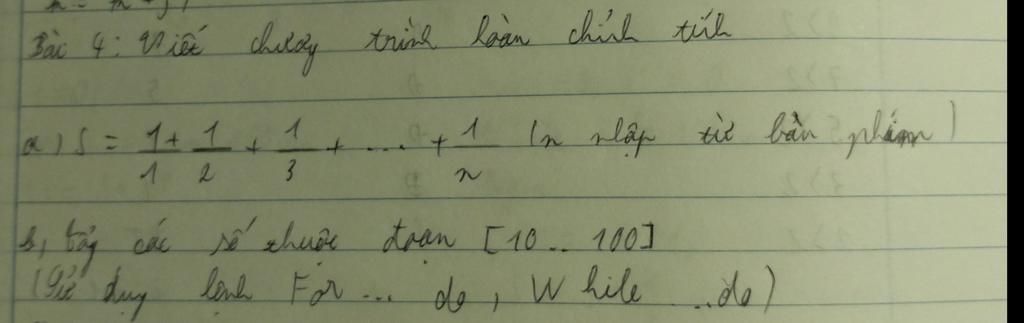 Bài 4: Viết chương trình hoàn chỉnh tính
a) S = 1/1 + 1/2 + 1/3 + ... + 1/n (n nhập từ bàn phím)
b, tổng các số thuộc đoạn [10..100]
(Sử dụng lệnh For ... do, While ...do)